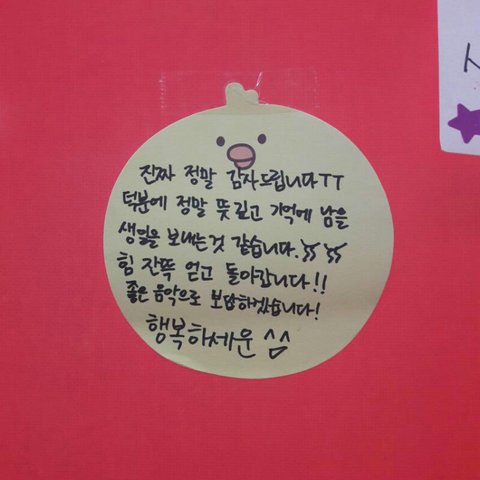 진짜 정말 감사드립니다ㅜㅜ
덕분에 정말 뜻깊고 기억에 남을
생일을 보내는것 같습니다.
힘 잔뜩 얻고 돌아갑니다!!
좋은 음악으로 보답하겠습니다!
행복하세운 ^^